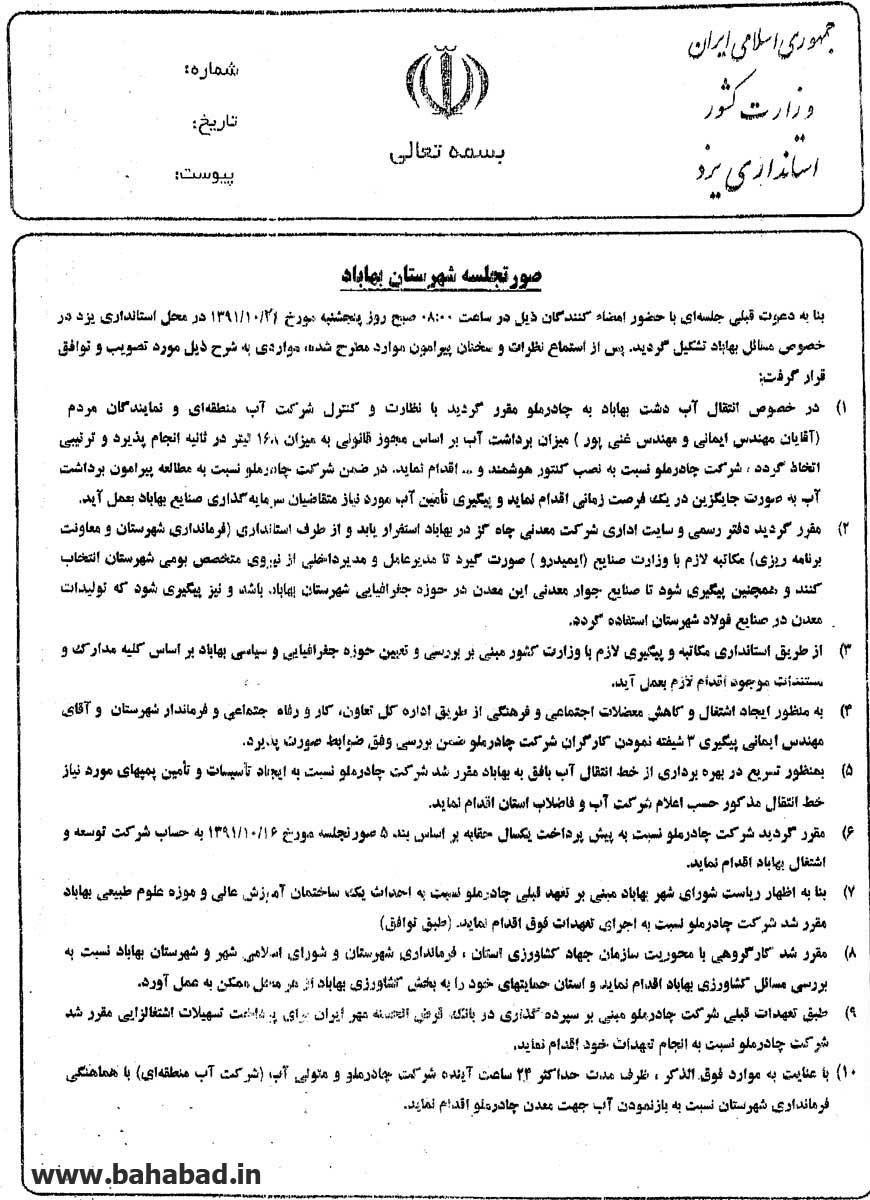 جمهوری اسلامی ایران
وزارت کشور
استانداری یزد
بسمه تعالی
شماره:
تاریخ:
پیوست:
صورتجلسه شهرستان بهاباد
بنا به دعوت قبلی جلسه‌ای با حضور امضاء کنندگان ذیل در ساعت ۰۸:۰۰ صبح روز پنجشنبه مورخ ۱۳۹۱/۱۰/۲۱ در محل استانداری یزد در
خصوص مسائل بهاباد تشکیل گردید. پس از استماع نظرات و سخنان پیرامون موارد مطرح شده، مواردی به شرح ذیل مورد تصویب و توافق
قرار گرفت:
۱) در خصوص انتقال آب دشت بهاباد به چادرملو مقرر گردید با نظارت و کنترل شرکت آب منطقه‌ای و نمایندگان مردم
(آقایان مهندس ایمانی و مهندس غنی پور ) میزان برداشت آب بر اساس مجوز قانونی به میزان ۱۶۸ لیتر در ثانیه انجام پذیرد و ترتیبی
اتخاذ گردد ، شرکت چادرملو نسبت به نصب کنتور هوشمند و ... اقدام نماید. در ضمن شرکت چادرملو نسبت به مطالعه پیرامون برداشت
آب به صورت جایگزین در یک فرصت زمانی اقدام نماید و پیگیری تأمین آب مورد نیاز متقاضیان سرمایه گذاری صنایع بهاباد بعمل آید.
۲) مقرر گردید دفتر رسمی و سایت اداری شرکت معدنی چاه گز در بهاباد استقرار یابد و از طرف استانداری (فرمانداری شهرستان و معاونت
برنامه ریزی) مکاتبه لازم با وزارت صنایع (ایمیدرو ) صورت گیرد تا مدیرعامل و مدیرداخلی از نیروی متخصص بومی شهرستان انتخاب
کنند و همچنین پیگیری شود تا صنایع جوار معدنی این معدن در حوزه جغرافیایی شهرستان بهاباد باشد و نیز پیگیری شود که تولیدات
معدن در صنایع فولاد شهرستان استفاده گردد.
۳) از طریق استانداری مکاتبه و پیگیری لازم با وزارت کشور مبنی بر بررسی و تعیین حوزه جغرافیایی و سیاسی بهاباد بر اساس کلیه مدارک و
مستندات موجود اقدام لازم بعمل آید.
۴) به منظور ایجاد اشتغال و کاهش معضلات اجتماعی و فرهنگی از طریق اداره کل تعاون، کار و رفاه اجتماعی و فرماندار شهرستان و آقای
مهندس ایمانی پیگیری ۳ شیفته نمودن کارگران شرکت چادرملو ضمن بررسی وفق ضوابط صورت پذیرد.
۵) بمنظور تسریع در بهره برداری از خط انتقال آب بافق به بهاباد مقرر شد شرکت چادرملو نسبت به ایجاد تأسیسات و تأمین پمپهای مورد نیاز
خط انتقال مذکور حسب اعلام شرکت آب و فاضلاب استان اقدام نماید.
۶) مقرر گردید شرکت چادرملو نسبت به پیش پرداخت یکسال حقابه بر اساس بند ۵ صورتجلسه مورخ ۱۳۹۱/۱۰/۱۶ به حساب شرکت توسعه و
اشتغال بهاباد اقدام نماید.
۷) بنا به اظهار ریاست شورای شهر بهاباد مبنی بر تعهد قبلی چادرملو نسبت به احداث یک ساختمان آموزش عالی و موزه علوم طبیعی بهاباد
مقرر شد شرکت چادرملو نسبت به اجرای تعهدات فوق اقدام نماید. (طبق توافق)
۸) مقرر شد کارگروهی با محوریت سازمان جهاد کشاورزی استان ، فرمانداری شهرستان و شورای اسلامی شهر و شهرستان بهاباد نسبت به
بررسی مسائل کشاورزی بهاباد اقدام نماید و استان حمایتهای خود را به بخش کشاورزی بهاباد از هر محل ممکن به عمل آورد.
۹) طبق تعهدات قبلی شرکت چادرملو مبنی بر سپرده گذاری در بانک قرض الحسنه مهر ایران برای پرداخت تسهیلات اشتغالزایی مقرر شد
شرکت چادرملو نسبت به انجام تعهدات خود اقدام نماید.
۱۰) با عنایت به موارد فوق الذکر ، ظرف مدت حداکثر ۲۴ ساعت آینده شرکت چادرملو و متولی آب (شرکت آب منطقه‌ای) با هماهنگی
فرمانداری شهرستان نسبت به بازنمودن آب جهت معدن چادرملو اقدام نماید.
www.bahabad.in